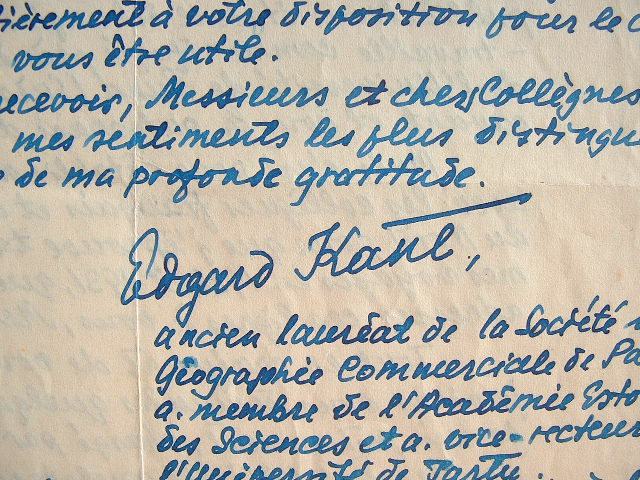 ièrement à votre disposition pour le c
vous être utile.
recevoir, Messieurs et chers Collègues
mes sentiments les plus distingu
de ma profonde gratitude.
Edgard Kant,
ancien lauréat de la Société
Géographie Commerciale de Pa
a. membre de l'Académie Esto
des Sciences et a. vice-recteur
l'Université de Tartu.